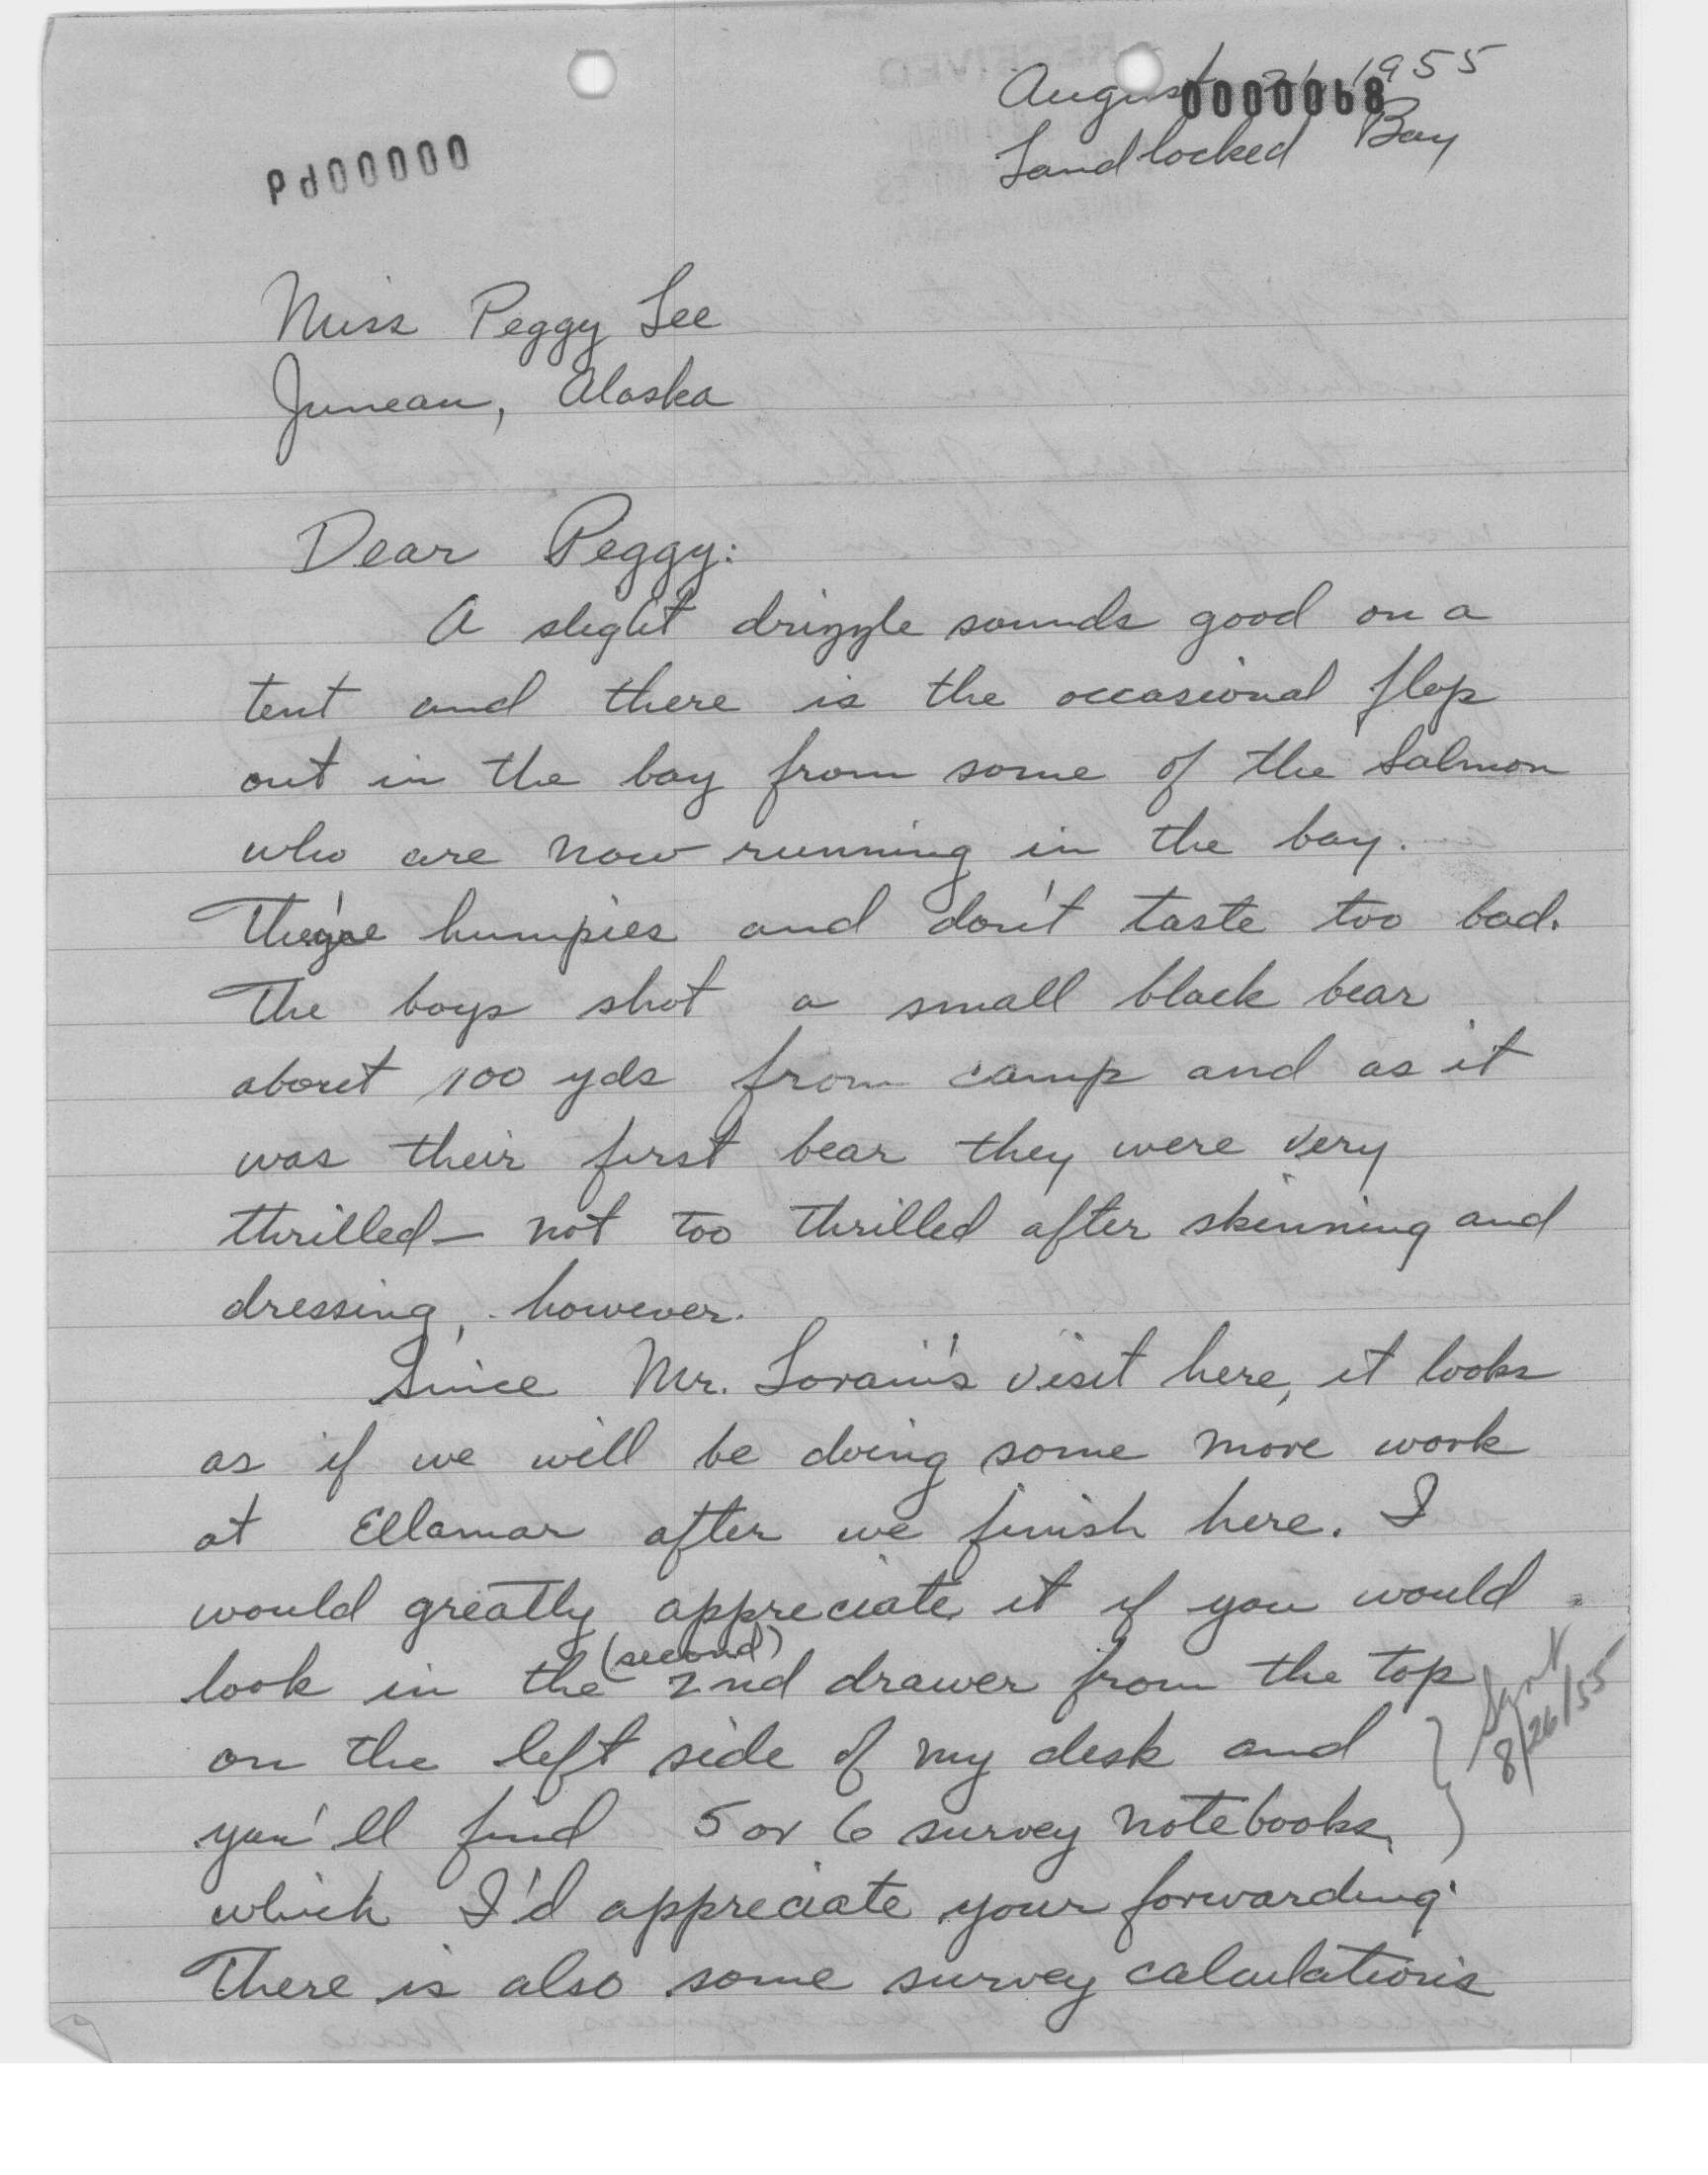 August 21 1955
0000068
Landlocked Bay
Miss Peggy Lee
Juneau, Alaska
Dear Peggy:
A slight drizzle sounds good on a
tent and there is the occasional flop
out in the bay from some of the Salmon
who are now running in the bay.
They're humpies and don't taste too bad.
The boys shot a small black bear
about 100 yds from camp and as it
was their first bear they were very
thrilled — not too thrilled after skinning and
dressing, however.
Since Mr. Lorain's visit here, it looks
as if we will be doing some more work
at Ellamar after we finish here. I
would greatly appreciate it if you would
(second)
look in the 2nd drawer from the top
on the left side of my desk and
you'll find 5 or 6 survey notebooks
which I'd appreciate your forwarding.
There is also some survey calculations
Sent
8/26/55